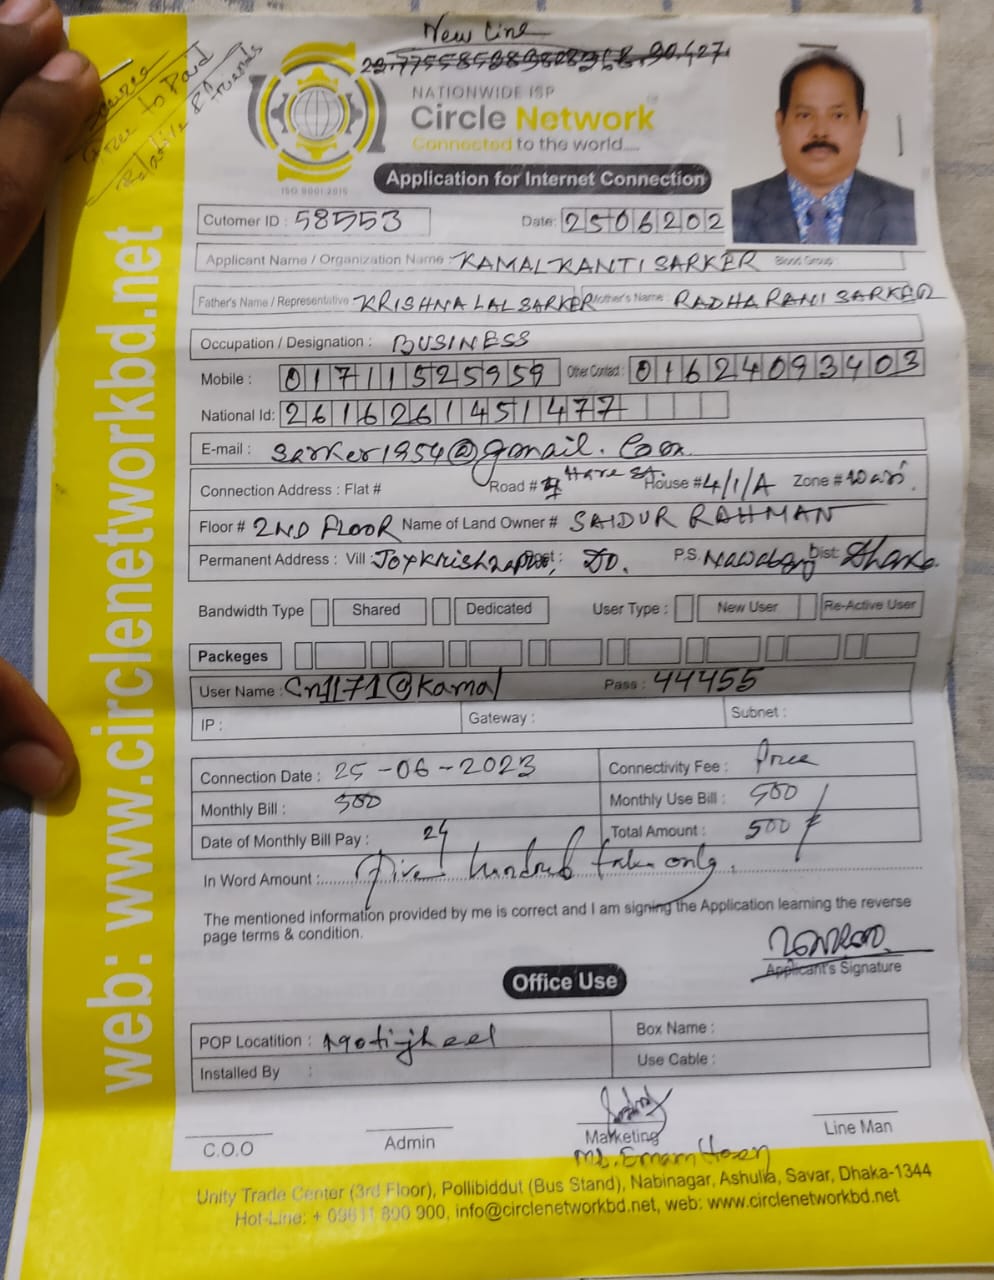 New Line
Source
Free to Paid
Relative & Friends
NATIONWIDE ISP
Circle Network
Connected to the world....
ISO 9001:2015
Application for Internet Connection
Cutomer ID : 58553
Date: 2506202
Applicant Name / Organization Name : KAMAL KANTI SARKER Blood Group :
Father's Name / Representative KRISHNA LAL SARKER Mother's Name : RADHA RANI SARKER
Occupation / Designation : BUSINESS
Mobile : 01711525959 Other Contact : 01624093403
National Id: 2616261451477
E-mail : sarker1954@gmail.com
Connection Address : Flat # Road # Hare St. House #4/1/A Zone # wari.
Floor # 2ND FLOOR Name of Land Owner # SAIDUR RAHMAN
Permanent Address : Vill : Joykrishnapur Post : Do. P.S. Nawabgonj Dist: Dhaka.
Bandwidth Type Shared Dedicated User Type : New User Re-Active User
Packeges
User Name : Cn1171@Kamal Pass : 44455
IP : Gateway : Subnet :
Connection Date : 25-06-2023 Connectivity Fee : Free
Monthly Bill : 500 Monthly Use Bill : 500
Date of Monthly Bill Pay : 24 Total Amount : 500/
In Word Amount : Five hundred taka only.
The mentioned information provided by me is correct and I am signing the Application learning the reverse
page terms & condition.
Applicant's Signature
Office Use
POP Locatition : Motijheel Box Name :
Installed By : Use Cable :
C.O.O Admin Marketing Line Man
Md. Emam Hosen
Unity Trade Center (3rd Floor), Pollibiddut (Bus Stand), Nabinagar, Ashulia, Savar, Dhaka-1344
Hot-Line: + 09611 800 900, info@circlenetworkbd.net, web: www.circlenetworkbd.net
web: www.circlenetworkbd.net